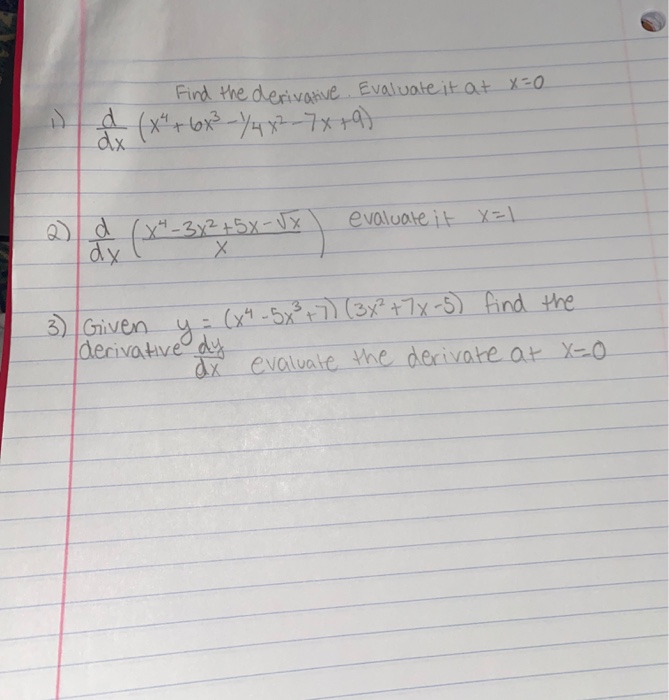 Find the derivative. Evaluate it at x=0
1) d/dx (x⁴ + 6x³ - 1/4 x² - 7x + 9)
2) d/dx ((x⁴ - 3x² + 5x - √x)/x) evaluate it x=1
3) Given y = (x⁴ - 5x³ + 7) (3x² + 7x - 5) find the
derivative dy/dx evaluate the derivate at x=0